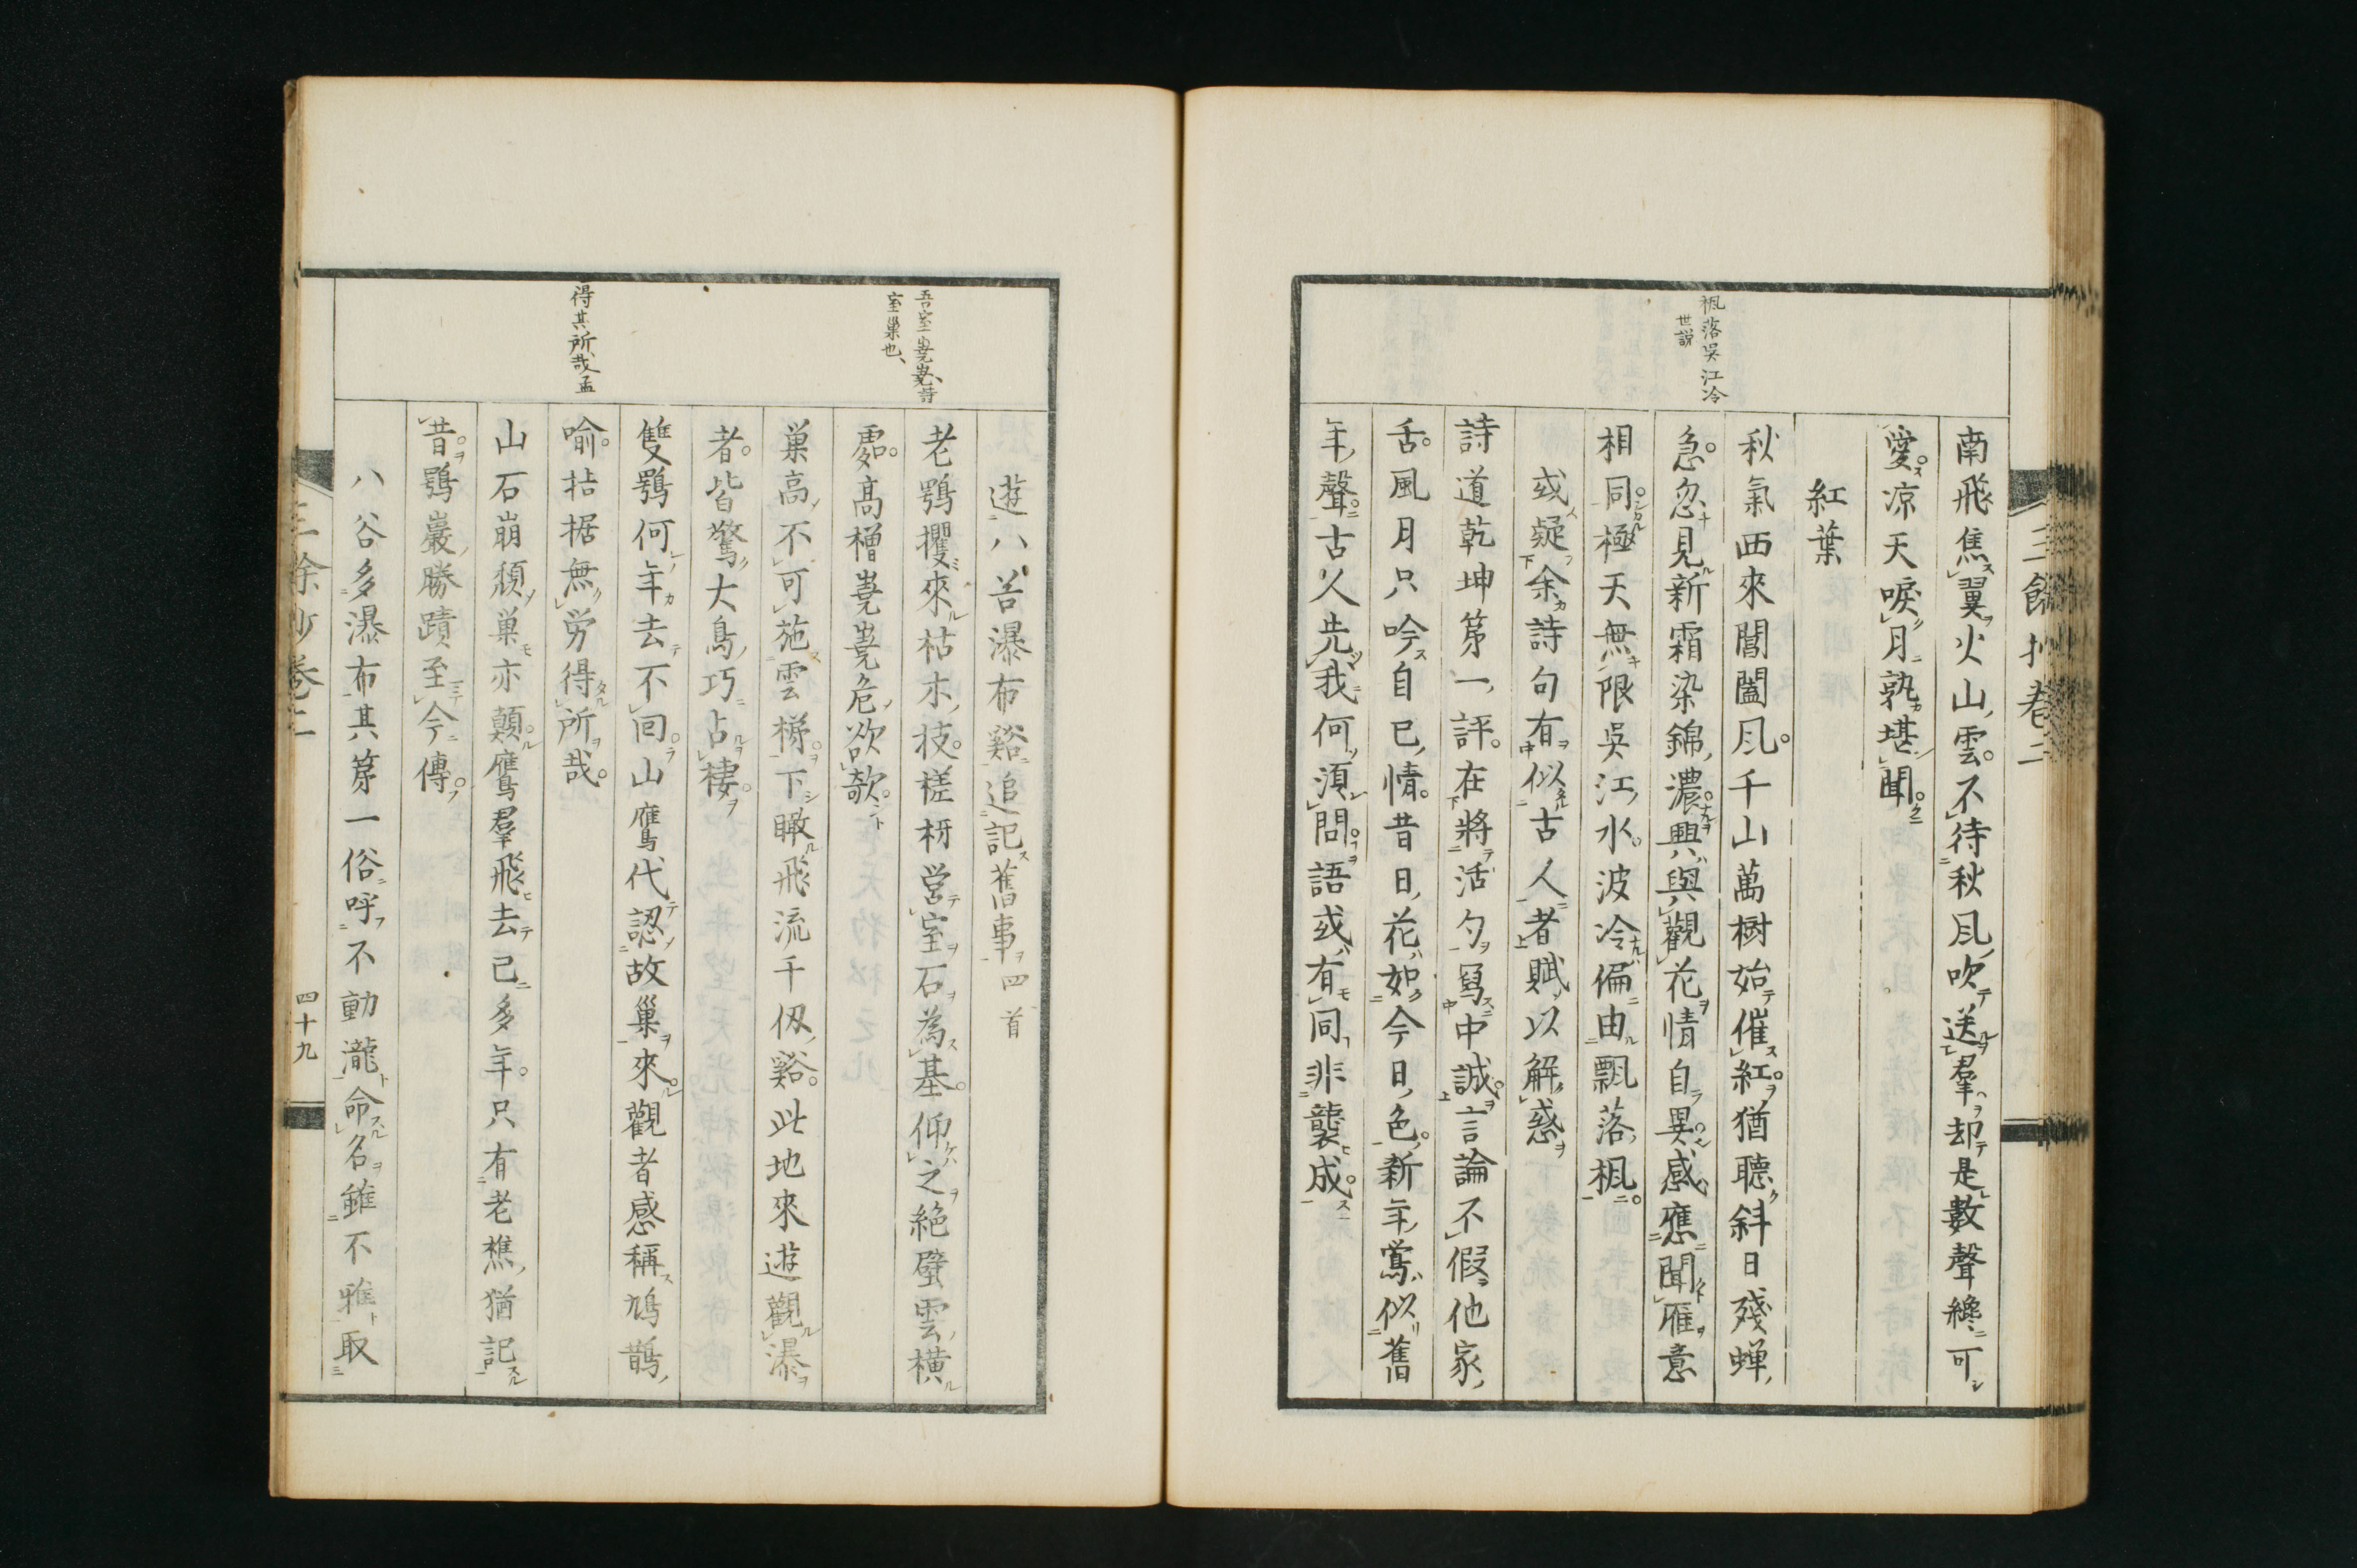 三餘抄卷二
南飛焦翼火山雲不待秋風吹送羣却是數聲纔可
愛凉天唳月孰堪聞
紅葉
楓落吳江冷
世説
秋氣西來閶闔風千山萬樹始催紅猶聽斜日殘蝉
急忽見新霜染錦濃興與觀花情自異感應聞雁意
相同極天無限吳江水波冷偏由飄落楓
或疑余詩句有似古人者賦以解惑
詩道乾坤第一評在將活勺寫中誠言論不假他家
舌風月只吟自已情昔日花如今日色新年鶯似舊
年聲古人先我何須問語或有同非襲成
遊八谷瀑布谿追記舊事四首
吾室嶤嶤詩
室巢也
老鶚攫來枯木枝槎枒営室石為基仰之絶壁雲橫
處高橧嶤嶤危欲欹
巢高不可施雲梯下瞰飛流千仭谿此地來遊觀瀑
者皆驚大鳥巧占棲
雙鶚何年去不回山鷹代認故巢來觀者感稱鳩鵲
得其所哉孟
喻拮据無労得所哉
山石崩頽巢亦顛鷹羣飛去已多年只有老樵猶記
昔鶚巖勝蹟至今傳
八谷多瀑布其第一俗呼不動瀧命名雖不雅取
三餘抄卷二
四十九